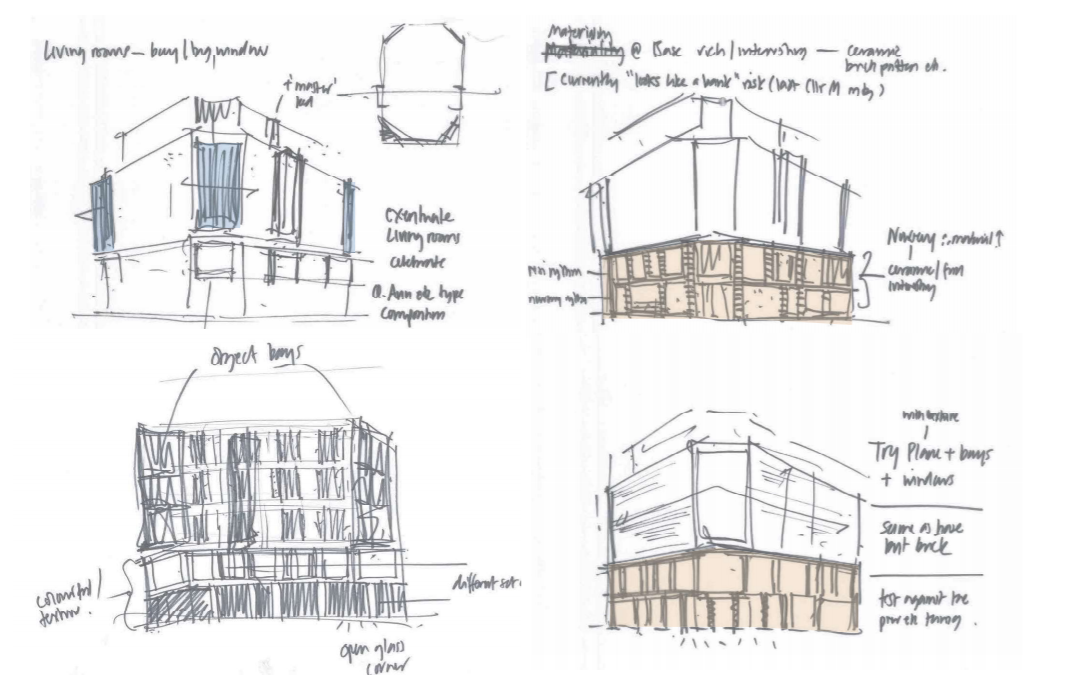 Living rooms — bay / big window
+ 'master'
bed
Accentuate
Living rooms
celebrate
Q. Ann etc type
Composition
Materiality
@ Base rich / interesting — ceramic
brick pattern etc.
[ Currently "looks like a bank" risk (last Cllr M mtg)
∴ material ↑
ceramic /
interesting
Object bays
colourful /
texture.
different set
open glass
corner
with texture
Try Plane + bays
+ windows
same as base
but brick
test against the